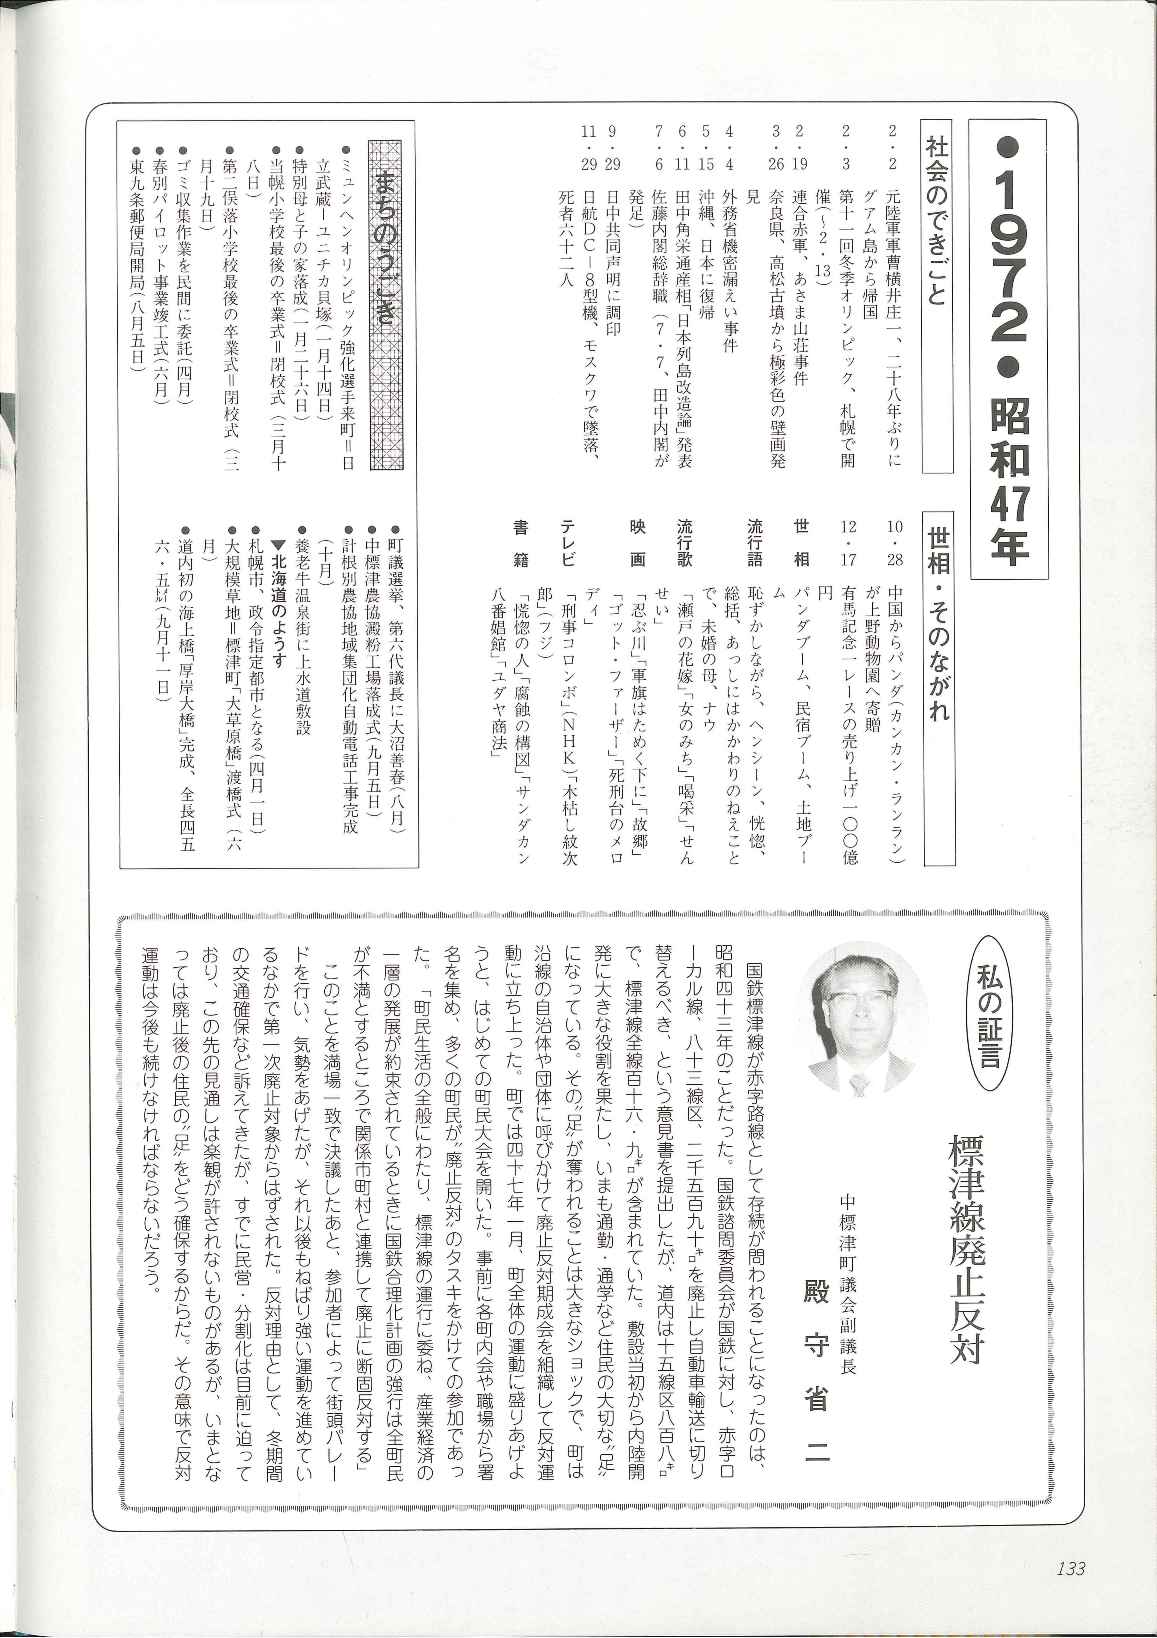 ●1972●昭和47年
社会のできごと
2・2　元陸軍軍曹横井庄一、二十八年ぶりに
グアム島から帰国
2・3　第十一回冬季オリンピック、札幌で開
催(〜2・13)
2・19　連合赤軍、あさま山荘事件
3・26　奈良県、高松古墳から極彩色の壁画発
見
4・4　外務省機密漏えい事件
5・15　沖縄、日本に復帰
6・11　田中角栄通産相「日本列島改造論」発表
7・6　佐藤内閣総辞職（7・7、田中内閣が
発足）
9・29　日中共同声明に調印
11・29　日航DC－8型機、モスクワで墜落、
死者六十二人
世相・そのながれ
10・28　中国からパンダ(カンカン・ランラン)
が上野動物園へ寄贈
12・17　有馬記念一レースの売り上げ一〇〇億
円
世相　パンダブーム、民宿ブーム、土地ブー
ム
流行語　恥ずかしながら、ヘンシーン、恍惚、
総括、あっしにはかかわりのねえこと
で、未婚の母、ナウ
流行歌　「瀬戸の花嫁」「女のみち」「喝采」「せん
せい」
映画　「忍ぶ川」「軍旗はためく下に」「故郷」
「ゴット・ファーザー」「死刑台のメロ
ディ」
テレビ　「刑事コロンボ」(NHK)「木枯し紋次
郎」(フジ)
書籍　「慌惚の人」「腐蝕の構図」「サンダカン
八番娼館」「ユダヤ商法」
まちのうごき
●ミュンヘンオリンピック強化選手来町＝日
立武蔵－ユニチカ貝塚(一月十四日)
●特別母と子の家落成(一月二十六日)
●当幌小学校最後の卒業式＝閉校式（三月十
八日）
●第二俣落小学校最後の卒業式＝閉校式（三
月十九日）
●ゴミ収集作業を民間に委託(四月)
●春別パイロット事業竣工式(六月)
●東九条郵便局開局(八月五日)
●町議選挙、第六代議長に大沼善春(八月)
●中標津農協澱粉工場落成式(九月五日)
●計根別農協地域集団化自動電話工事完成
(十月)
●養老牛温泉街に上水道敷設
▼北海道のようす
●札幌市、政令指定都市となる(四月一日)
●大規模草地＝標津町「大草原橋」渡橋式（六
月）
●道内初の海上橋「厚岸大橋」完成、全長四五
六・五㍍(九月十一日)
私の証言
標津線廃止反対
中標津町議会副議長
殿守省二
国鉄標津線が赤字路線として存続が問われることになったのは、
昭和四十三年のことだった。国鉄諮問委員会が国鉄に対し、赤字ロ
ーカル線、八十三線区、二千五百九十㌔を廃止し自動車輸送に切り
替えるべき、という意見書を提出したが、道内は十五線区八百八㌔
で、標津線全線百十六・九㌔が含まれていた。敷設当初から内陸開
発に大きな役割を果たし、いまも通勤・通学など住民の大切な〝足〟
になっている。その〝足〟が奪われることは大きなショックで、町は
沿線の自治体や団体に呼びかけて廃止反対期成会を組織して反対運
動に立ち上った。町では四十七年一月、町全体の運動に盛りあげよ
うと、はじめての町民大会を開いた。事前に各町内会や職場から署
名を集め、多くの町民が〝廃止反対〟のタスキをかけての参加であっ
た。「町民生活の全般にわたり、標津線の運行に委ね、産業経済の
一層の発展が約束されているときに国鉄合理化計画の強行は全町民
が不満とするところで関係市町村と連携して廃止に断固反対する」
このことを満場一致で決議したあと、参加者によって街頭パレー
ドを行い、気勢をあげたが、それ以後もねばり強い運動を進めてい
るなかで第一次廃止対象からはずされた。反対理由として、冬期間
の交通確保など訴えてきたが、すでに民営・分割化は目前に迫って
おり、この先の見通しは楽観が許されないものがあるが、いまとな
っては廃止後の住民の〝足〟をどう確保するからだ。その意味で反対
運動は今後も続けなければならないだろう。
133